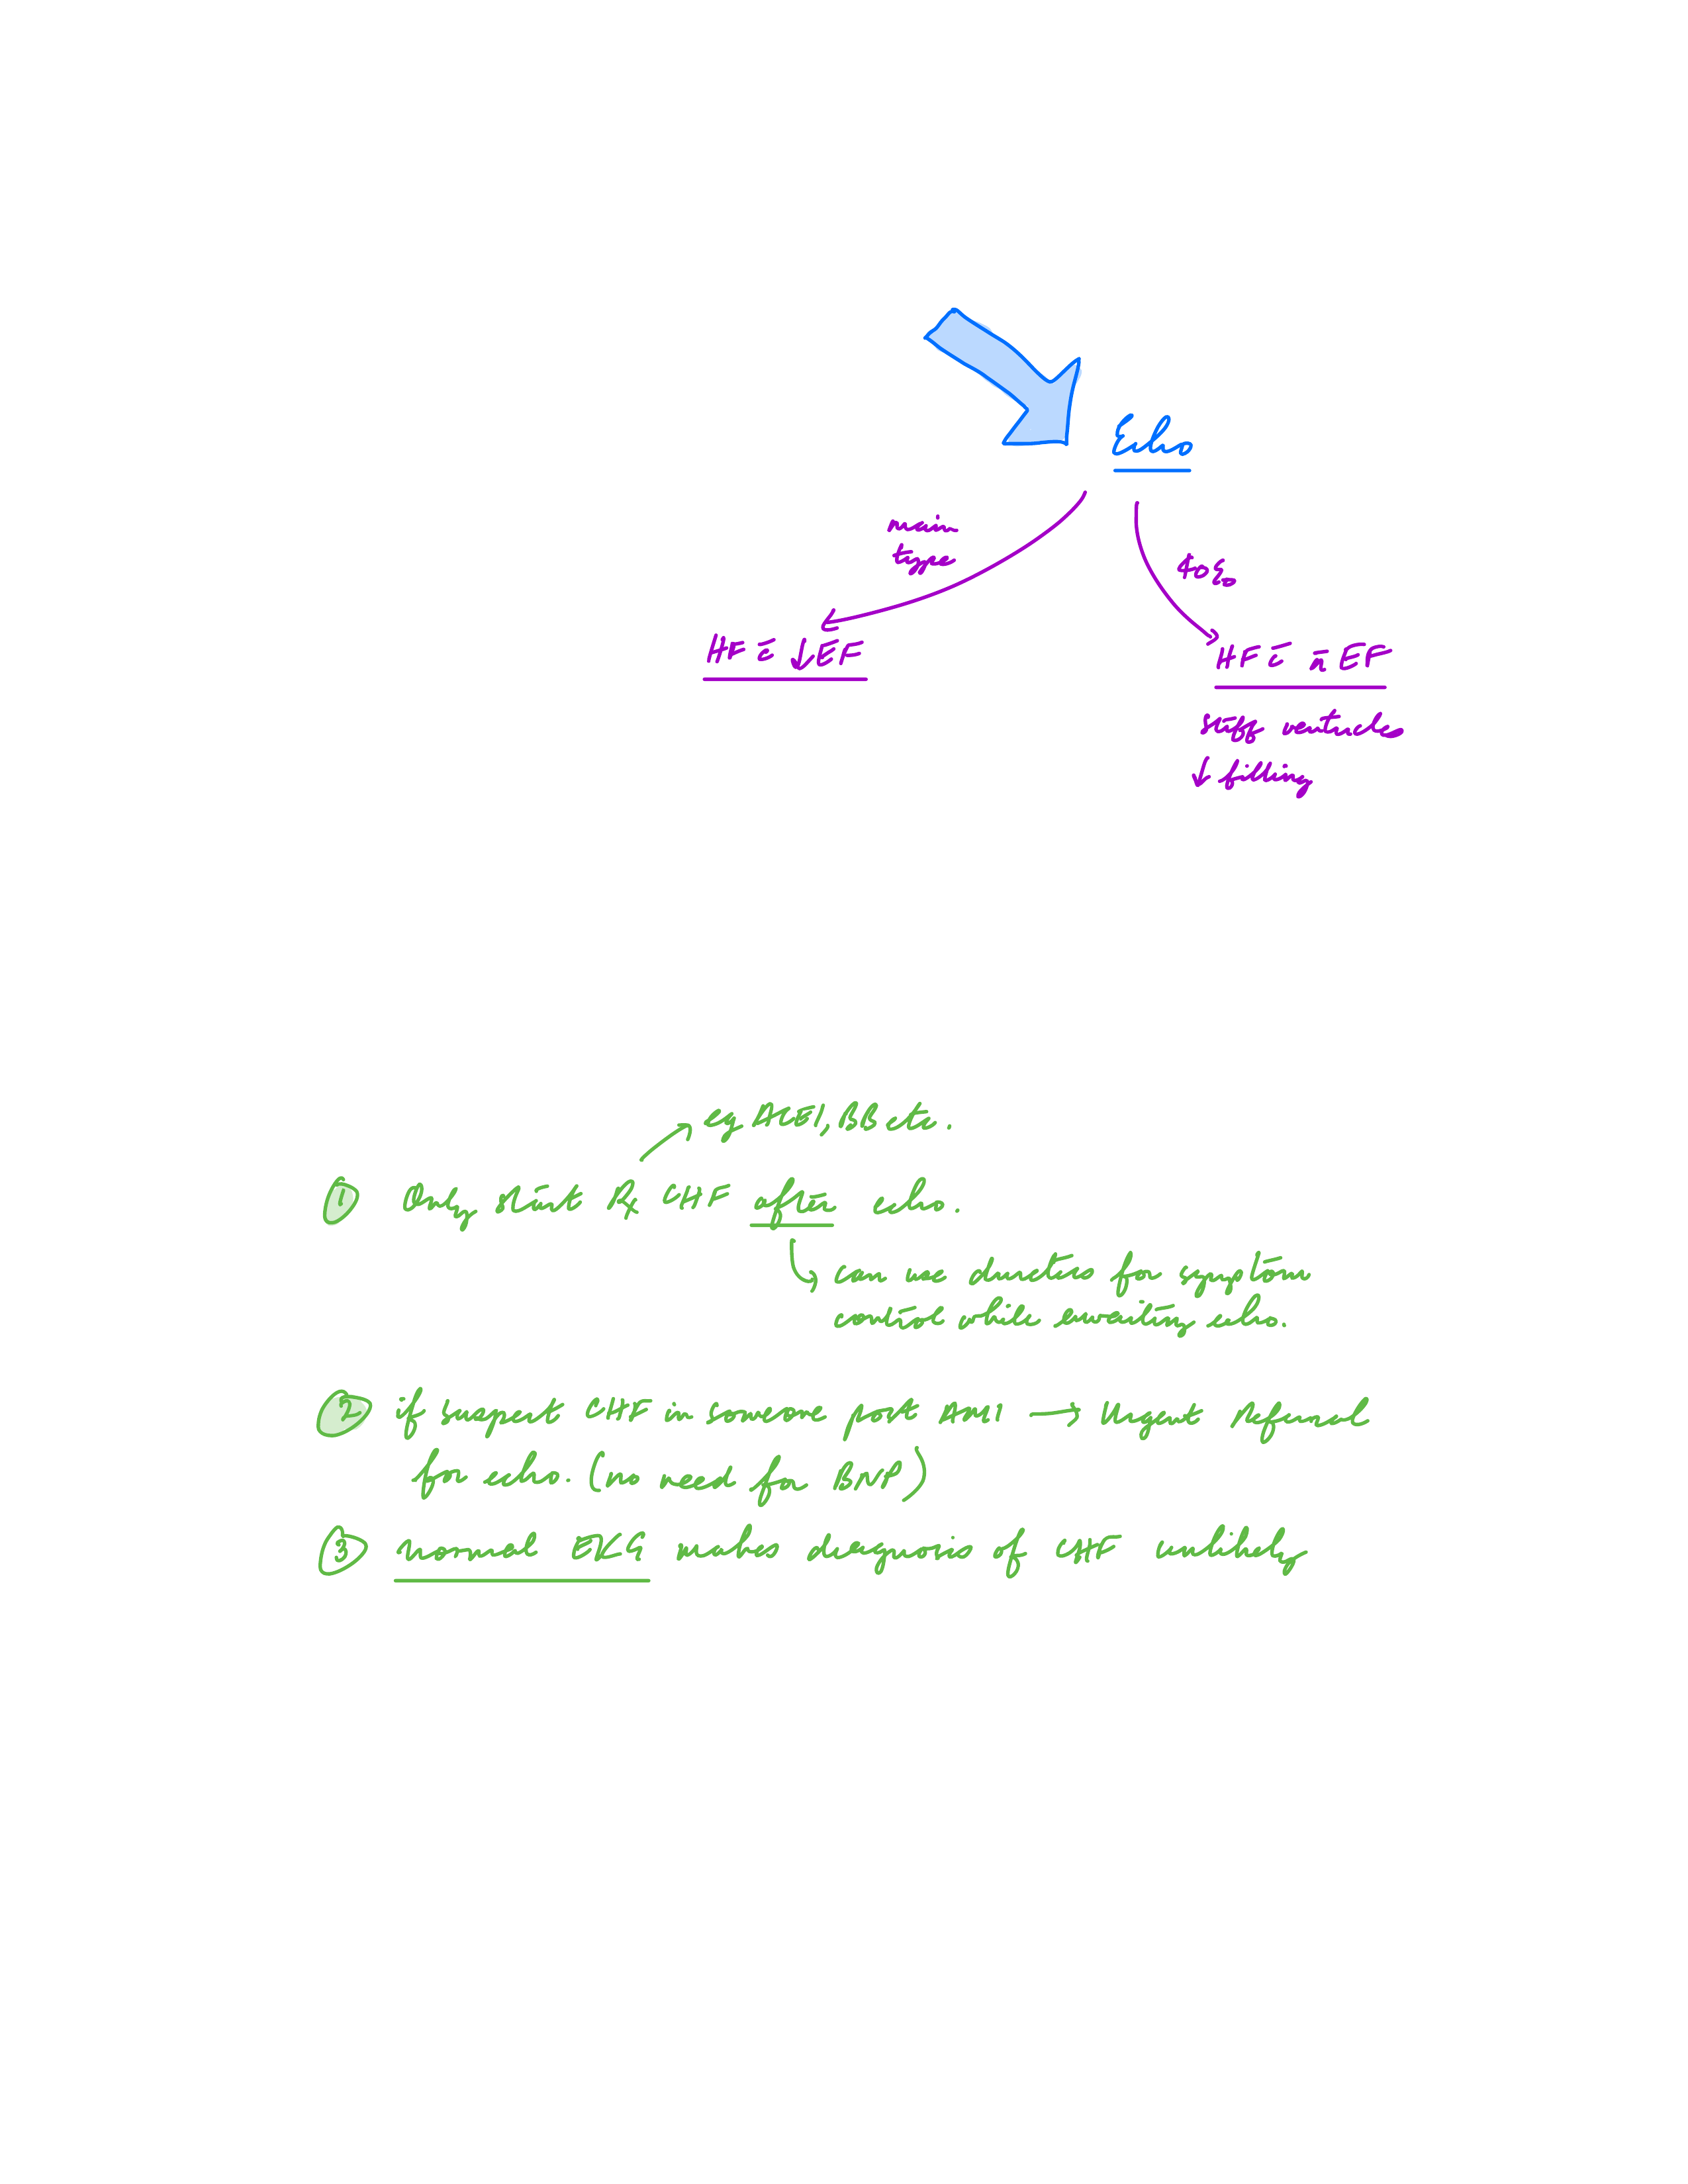 Echo
main
type
40%
HF c̄ ↓EF
HF c̄ n̄ EF
stiff ventricles
↓ filling
→ eg ACEI, BB etc.
① Only start Rx CHF after echo.
↳ can use diuretics for symptom
control while awaiting echo.
② if suspect CHF in someone post AMI → Urgent Referral
for echo. (no need for BNP)
③ normal EKG makes diagnosis of CHF unlikely